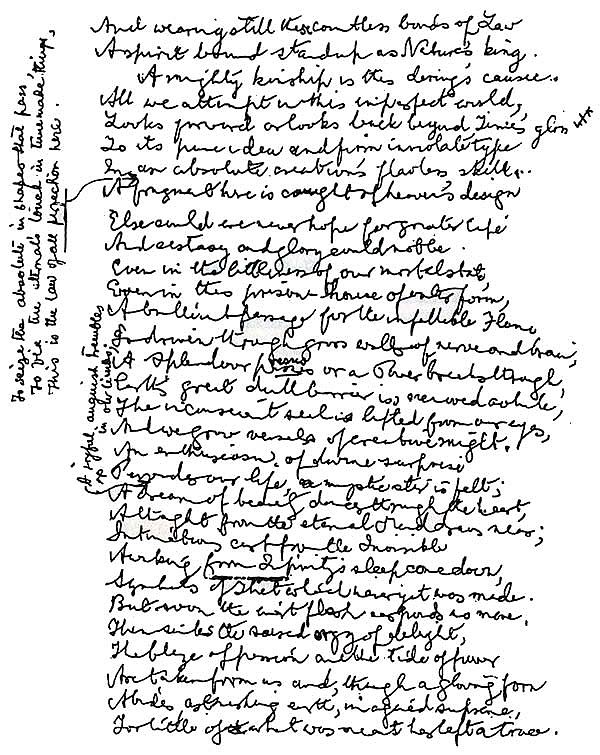 And wearing still these countless bonds of Law
A spirit bound stand up as Nature's king.
A mighty kinship is this daring's cause.
All we attempt in this imperfect world,
Looks forward or looks back beyond Time's gloss
To its pure idea and firm inviolate type
In an absolute creation's flawless skill.
To seize the absolute in shapes that pass,
To fix the eternal's touch in time-made things,
This is the law of all perfection here.
A fragment here is caught of heaven's design
Else could we never hope for greater life
And ecstasy and glory could not be.
Even in the littleness of our mortal state,
Even in this prison-house of outer form,
A brilliant passage for the infallible Flame
Is driven through gross walls of nerve and brain,
A Splendour presses or a Power breaks through,
Earth's great dull barrier is removed awhile,
The inconscient seal is lifted from our eyes,
And we grow vessels of creative might.
An enthusiasm of divine surprise
Pervades our life, a mystic stir is felt,
A joyful anguish trembles
in our limbs;
A dream of beauty dances through the heart,
A thought from the eternal Mind draws near,
Intimations cast from the Invisible
Awaking from Infinity's sleep come down,
Symbols of That which never yet was made.
But soon the inert flesh responds no more,
Then sinks the sacred orgy of delight,
The blaze of passion and the tide of power
Are taken from us and, though a glowing form
Abides astonishing earth, imagined supreme,
Too little of what was meant has left a trace.